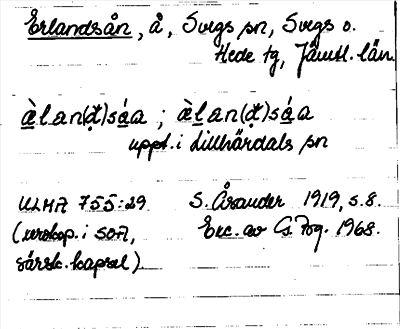 Erlandsån, å, Svegs sn, Svegs o.
Hede tg, Jämtl. län.
àlan(ḍ)sáa ; àlan(ḍ)sáa
uppt. i Lillhärdals sn
ULMA 755:29 S. Åsander 1919, s. 8.
(verkop. i SOA, Exc. av G. Fog. 1968.
särsk. kapsel)